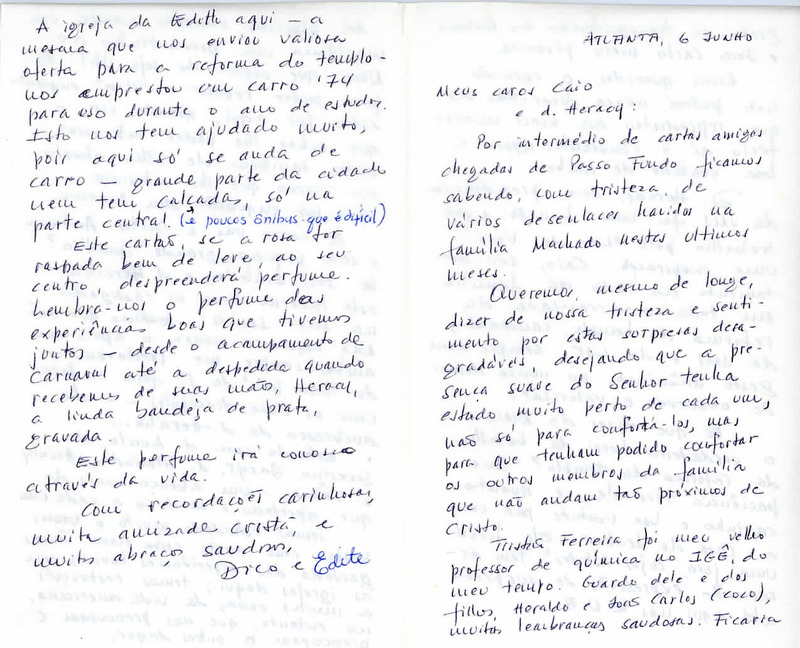 ATLANTA, 6 JUNHO
Meus caros Caio
e d. Heracy:
Por intermédio de cartas amigas
chegadas de Passo Fundo ficamos
sabendo, com tristeza, de
vários desenlaces havidos na
família Machado nestes ultimos
meses.
Queremos, mesmo de longe,
dizer de nossa tristeza e senti-
mento por estas surpresas desa-
gradáveis, desejando que a pre-
sença suave do Senhor tenha
estado muito perto de cada um,
não só para confortá-los, mas
para que tenham podido confortar
os outros membros da família
que não andam tão próximos de
Cristo.
Ferreira foi meu velho
professor de química no IGÊ, do
meu tempo. Guardo dele e dos
filhos, Heraldo e José Carlos (coco),
muitas lembranças saudosas. Ficaria
A igreja da Edith aqui — a
mesma que nos enviou valiosa
oferta para a reforma do templo -
nos emprestou um carro '74
para uso durante o ano de estudos.
Isto nos tem ajudado muito,
pois aqui só se anda de
carro — grande parte da cidade
nem tem calçada, só na
parte central. (e poucos ônibus - que é difícil)
Este cartão, se a rosa for
raspada bem de leve, ao seu
centro, desprenderá perfume.
Lembra-nos o perfume das
experiências boas que tivemos
juntos — desde o acampamento de
Carnaval até a despedida quando
recebemos de suas mãos, Heracy,
a linda bandeja de prata,
gravada.
Este perfume irá conosco
através da vida.
Com recordações carinhosas,
muita amizade cristã, e
muitos abraços saudosos,
Dico e Edite